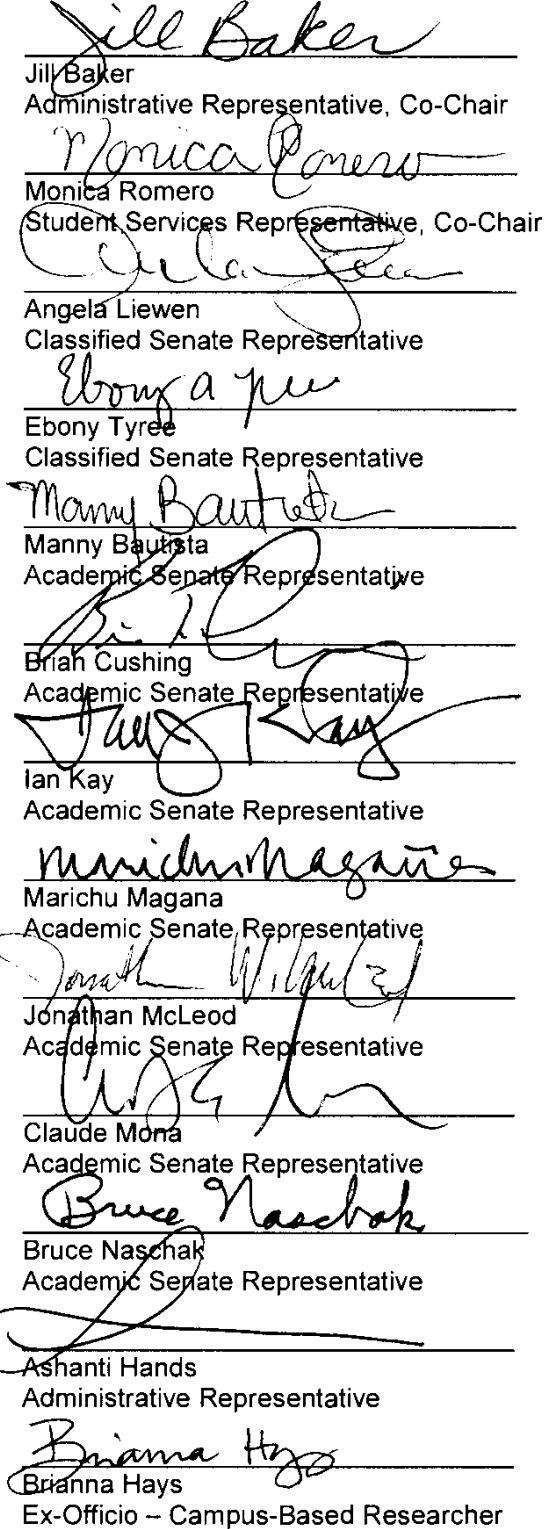 Jill Baker
Jill Baker
Administrative Representative, Co-Chair
Monica Romero
Monica Romero
Student Services Representative, Co-Chair
Angela Liewen
Classified Senate Representative
Ebony a
Ebony Tyree
Classified Senate Representative
Manny Bautista
Manny Bautista
Academic Senate Representative
Brian Cushing
Academic Senate Representative
Kay
Ian Kay
Academic Senate Representative
Marichu Magaña
Marichu Magana
Academic Senate Representative
Jonathan
Jonathan McLeod
Academic Senate Representative
Claude Mona
Academic Senate Representative
Bruce Naschak
Bruce Naschak
Academic Senate Representative
Ashanti Hands
Administrative Representative
Brianna Hays
Brianna Hays
Ex-Officio – Campus-Based Researcher